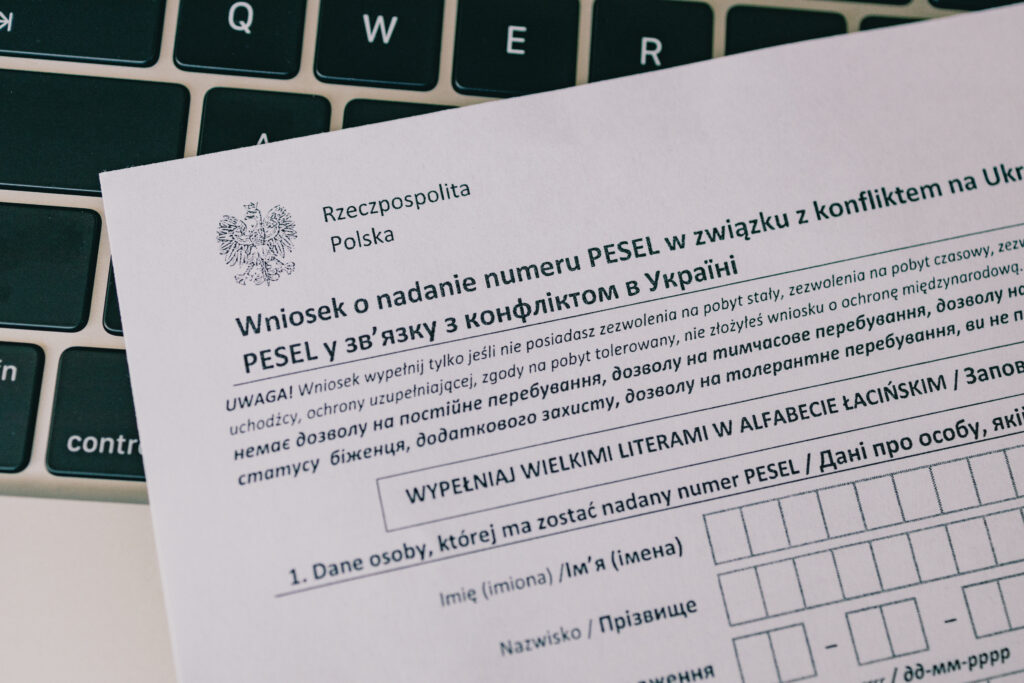 Q W E R
A
Rzeczpospolita
Polska
Wniosek o nadanie numeru PESEL w związku z konfliktem na Ukr
PESEL у зв’язку з конфліктом в Україні
UWAGA! Wniosek wypełnij tylko jeśli nie posiadasz zezwolenia na pobyt stały, zezwolenia na pobyt czasowy, zezw
uchodźcy, ochrony uzupełniającej, zgody na pobyt tolerowany, nie złożyłeś wniosku o ochronę międzynarodową.
немає дозволу на постійне перебування, дозволу на тимчасове перебування, дозволу на
статусу біженця, додаткового захисту, дозволу на толерантне перебування, ви не п
WYPEŁNIAJ WIELKIMI LITERAMI W ALFABECIE ŁACIŃSKIM / Запов
1. Dane osoby, której ma zostać nadany numer PESEL / Дані про особу, якій
Imię (imiona) /Ім’я (імена)
Nazwisko / Прізвище
ження
/ дд-мм-рррр
contr